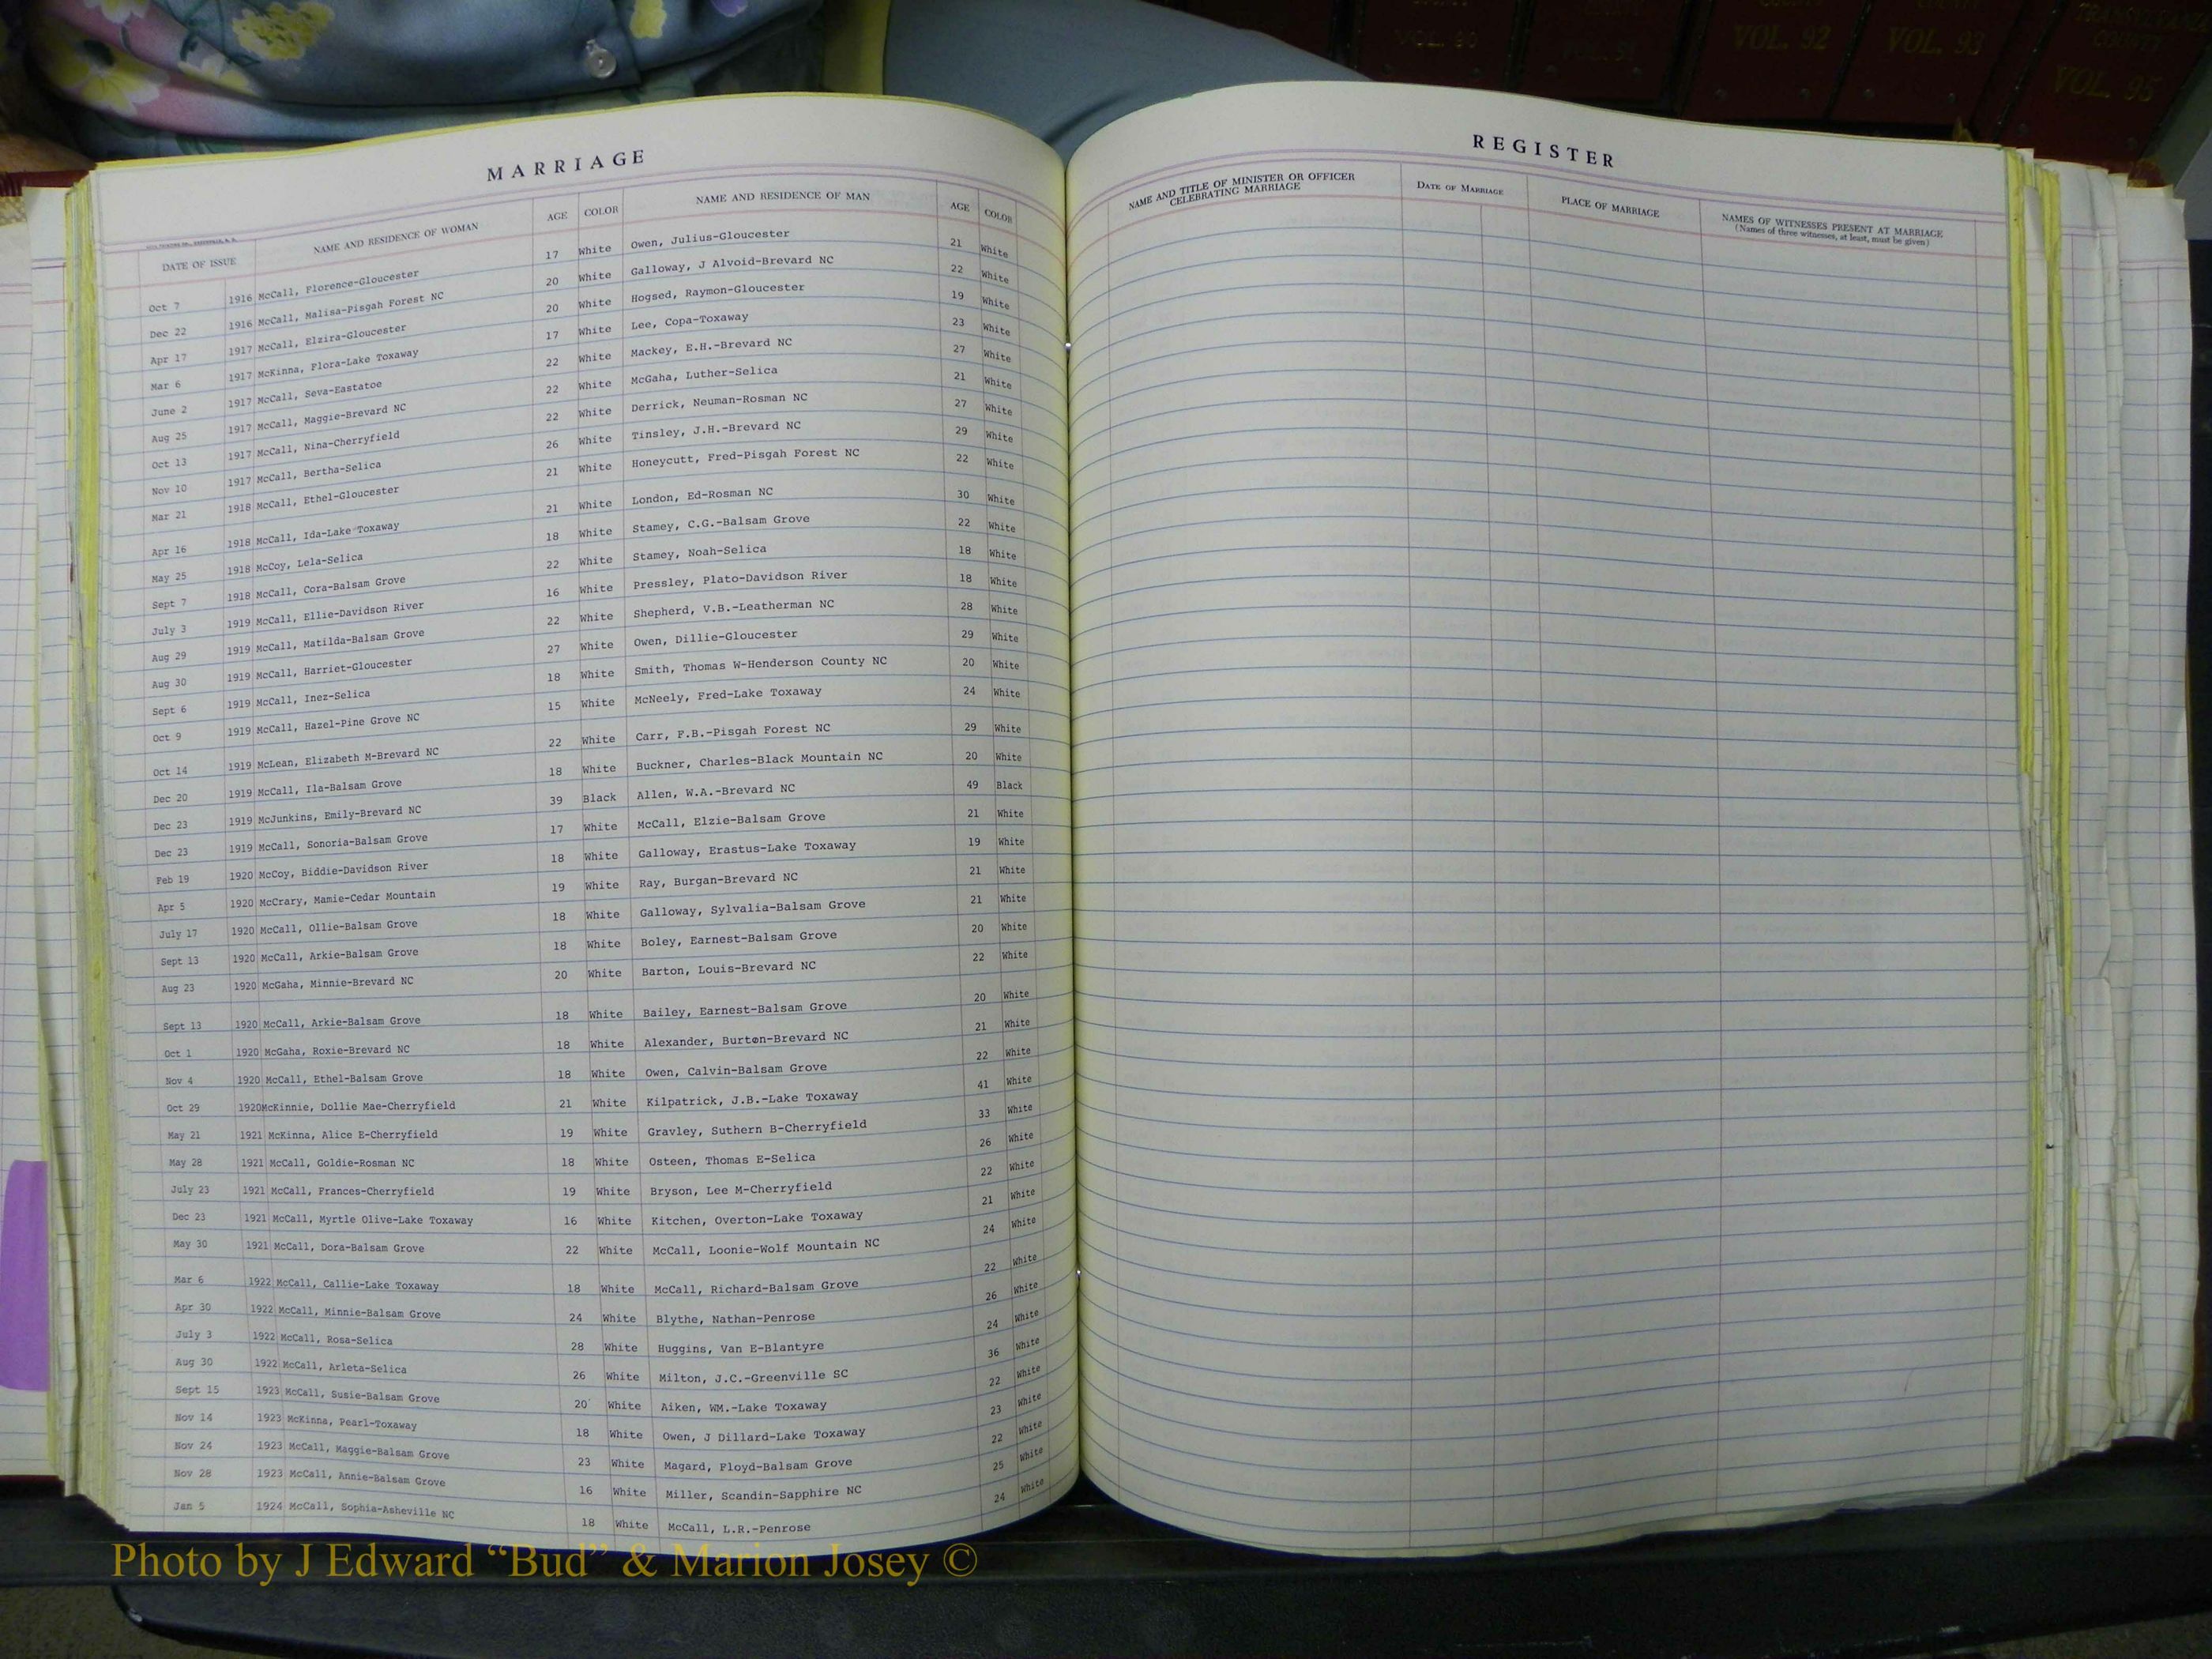 VOL. 92
VOL. 93
TRANSYLVANIA COUNTY
VOL. 95
MARRIAGE
REGISTER
DATE OF ISSUE NAME AND RESIDENCE OF WOMAN AGE COLOR NAME AND RESIDENCE OF MAN AGE COLOR
NAME AND TITLE OF MINISTER OR OFFICER CELEBRATING MARRIAGE DATE OF MARRIAGE PLACE OF MARRIAGE NAMES OF WITNESSES PRESENT AT MARRIAGE
(Names of three witnesses, at least, must be given)
Oct 7 1916 McCall, Florence-Gloucester 17 White Owen, Julius-Gloucester 21 White
Dec 22 1916 McCall, Malisa-Pisgah Forest NC 20 White Galloway, J Alvoid-Brevard NC 22 White
Apr 17 1917 McCall, Elzira-Gloucester 20 White Hogsed, Raymon-Gloucester 19 White
Mar 6 1917 McKinna, Flora-Lake Toxaway 17 White Lee, Copa-Toxaway 23 White
June 2 1917 McCall, Seva-Eastatoe 22 White Mackey, E.H.-Brevard NC 27 White
Aug 25 1917 McCall, Maggie-Brevard NC 22 White McGaha, Luther-Selica 21 White
Oct 13 1917 McCall, Nina-Cherryfield 22 White Derrick, Neuman-Rosman NC 27 White
Nov 10 1917 McCall, Bertha-Selica 26 White Tinsley, J.H.-Brevard NC 29 White
Mar 21 1918 McCall, Ethel-Gloucester 21 White Honeycutt, Fred-Pisgah Forest NC 22 White
Apr 16 1918 McCall, Ida-Lake Toxaway 21 White London, Ed-Rosman NC 30 White
May 25 1918 McCoy, Lela-Selica 18 White Stamey, C.G.-Balsam Grove 22 White
Sept 7 1918 McCall, Cora-Balsam Grove 22 White Stamey, Noah-Selica 18 White
July 3 1919 McCall, Ellie-Davidson River 16 White Pressley, Plato-Davidson River 18 White
Aug 29 1919 McCall, Matilda-Balsam Grove 22 White Shepherd, V.B.-Leatherman NC 28 White
Aug 30 1919 McCall, Harriet-Gloucester 27 White Owen, Dillie-Gloucester 29 White
Sept 6 1919 McCall, Inez-Selica 18 White Smith, Thomas W-Henderson County NC 20 White
Oct 9 1919 McCall, Hazel-Pine Grove NC 15 White McNeely, Fred-Lake Toxaway 24 White
Oct 14 1919 McLean, Elizabeth M-Brevard NC 22 White Carr, F.B.-Pisgah Forest NC 29 White
Dec 20 1919 McCall, Ila-Balsam Grove 18 White Buckner, Charles-Black Mountain NC 20 White
Dec 23 1919 McJunkins, Emily-Brevard NC 39 Black Allen, W.A.-Brevard NC 49 Black
Dec 23 1919 McCall, Sonoria-Balsam Grove 17 White McCall, Elzie-Balsam Grove 21 White
Feb 19 1920 McCoy, Biddie-Davidson River 18 White Galloway, Erastus-Lake Toxaway 19 White
Apr 5 1920 McCrary, Mamie-Cedar Mountain 19 White Ray, Burgan-Brevard NC 21 White
July 17 1920 McCall, Ollie-Balsam Grove 18 White Galloway, Sylvalia-Balsam Grove 21 White
Sept 13 1920 McCall, Arkie-Balsam Grove 18 White Boley, Earnest-Balsam Grove 20 White
Aug 23 1920 McGaha, Minnie-Brevard NC 20 White Barton, Louis-Brevard NC 22 White
Sept 13 1920 McCall, Arkie-Balsam Grove 18 White Bailey, Earnest-Balsam Grove 20 White
Oct 1 1920 McGaha, Roxie-Brevard NC 18 White Alexander, Burton-Brevard NC 21 White
Nov 4 1920 McCall, Ethel-Balsam Grove 18 White Owen, Calvin-Balsam Grove 22 White
Oct 29 1920McKinnie, Dollie Mae-Cherryfield 21 White Kilpatrick, J.B.-Lake Toxaway 41 White
May 21 1921 McKinna, Alice E-Cherryfield 19 White Gravley, Suthern B-Cherryfield 33 White
May 28 1921 McCall, Goldie-Rosman NC 18 White Osteen, Thomas E-Selica 26 White
July 23 1921 McCall, Frances-Cherryfield 19 White Bryson, Lee M-Cherryfield 22 White
Dec 23 1921 McCall, Myrtle Olive-Lake Toxaway 16 White Kitchen, Overton-Lake Toxaway 21 White
May 30 1921 McCall, Dora-Balsam Grove 22 White McCall, Loonie-Wolf Mountain NC 24 White
Mar 6 1922 McCall, Callie-Lake Toxaway 18 White McCall, Richard-Balsam Grove 22 White
Apr 30 1922 McCall, Minnie-Balsam Grove 24 White Blythe, Nathan-Penrose 26 White
July 3 1922 McCall, Rosa-Selica 28 White Huggins, Van E-Blantyre 24 White
Aug 30 1922 McCall, Arleta-Selica 26 White Milton, J.C.-Greenville SC 36 White
Sept 15 1923 McCall, Susie-Balsam Grove 20 White Aiken, WM.-Lake Toxaway 22 White
Nov 14 1923 McKinna, Pearl-Toxaway 18 White Owen, J Dillard-Lake Toxaway 23 White
Nov 24 1923 McCall, Maggie-Balsam Grove 23 White Magard, Floyd-Balsam Grove 22 White
Nov 28 1923 McCall, Annie-Balsam Grove 16 White Miller, Scandin-Sapphire NC 25 White
Jan 5 1924 McCall, Sophia-Asheville NC 18 White McCall, L.R.-Penrose 24 White
Photo by J Edward “Bud” & Marion Josey ©